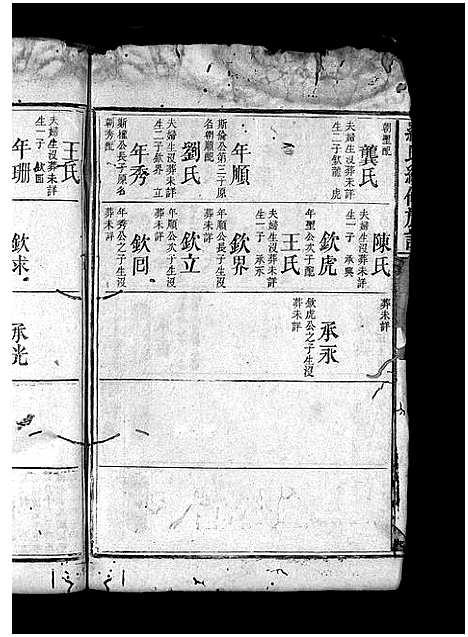 朝聖配
龔氏
夫婦生沒葬未詳
生二子 欽龍 虎
年順
斯倫公第三子原
名朝順配
劉氏
夫婦生沒葬未詳
生二子 欽界 立
年秀
斯權公長子原名
朝秀配
王氏
夫婦生沒葬未詳
生一子 欽回
年珊
陳氏
夫婦生沒葬未詳
生一子 承興
欽虎
年聖公次子配
王氏
夫婦生沒葬未詳
生一子 承永
欽界
年順公長子生沒
葬未詳
欽立
年順公次子生沒
葬未詳
欽回
年秀公之子生沒
葬未詳
欽求
葬未詳
承永
欽虎公之子生沒
葬未詳
承光